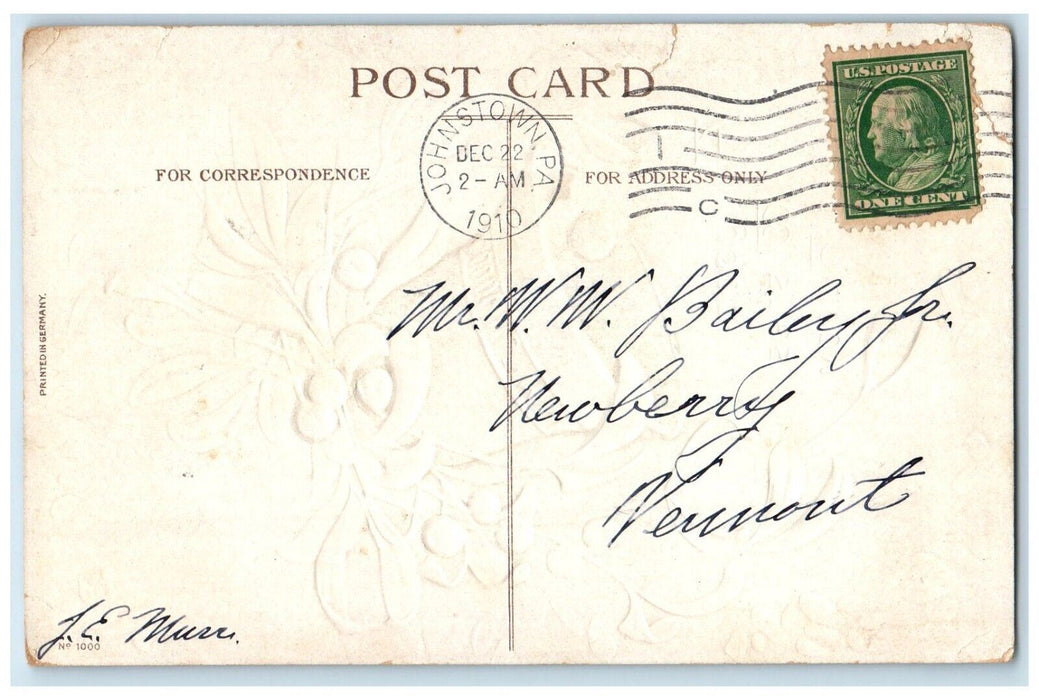 POST CARD
U.S. POSTAGE
ONE CENT
JOHNSTOWN, PA.
DEC 22
2 - AM
1910
1
C
FOR CORRESPONDENCE
FOR ADDRESS ONLY
PRINTED IN GERMANY.
Mr. W. W. Bailey Jr.
Newberry
Vermont
J. E.
Nº 1000